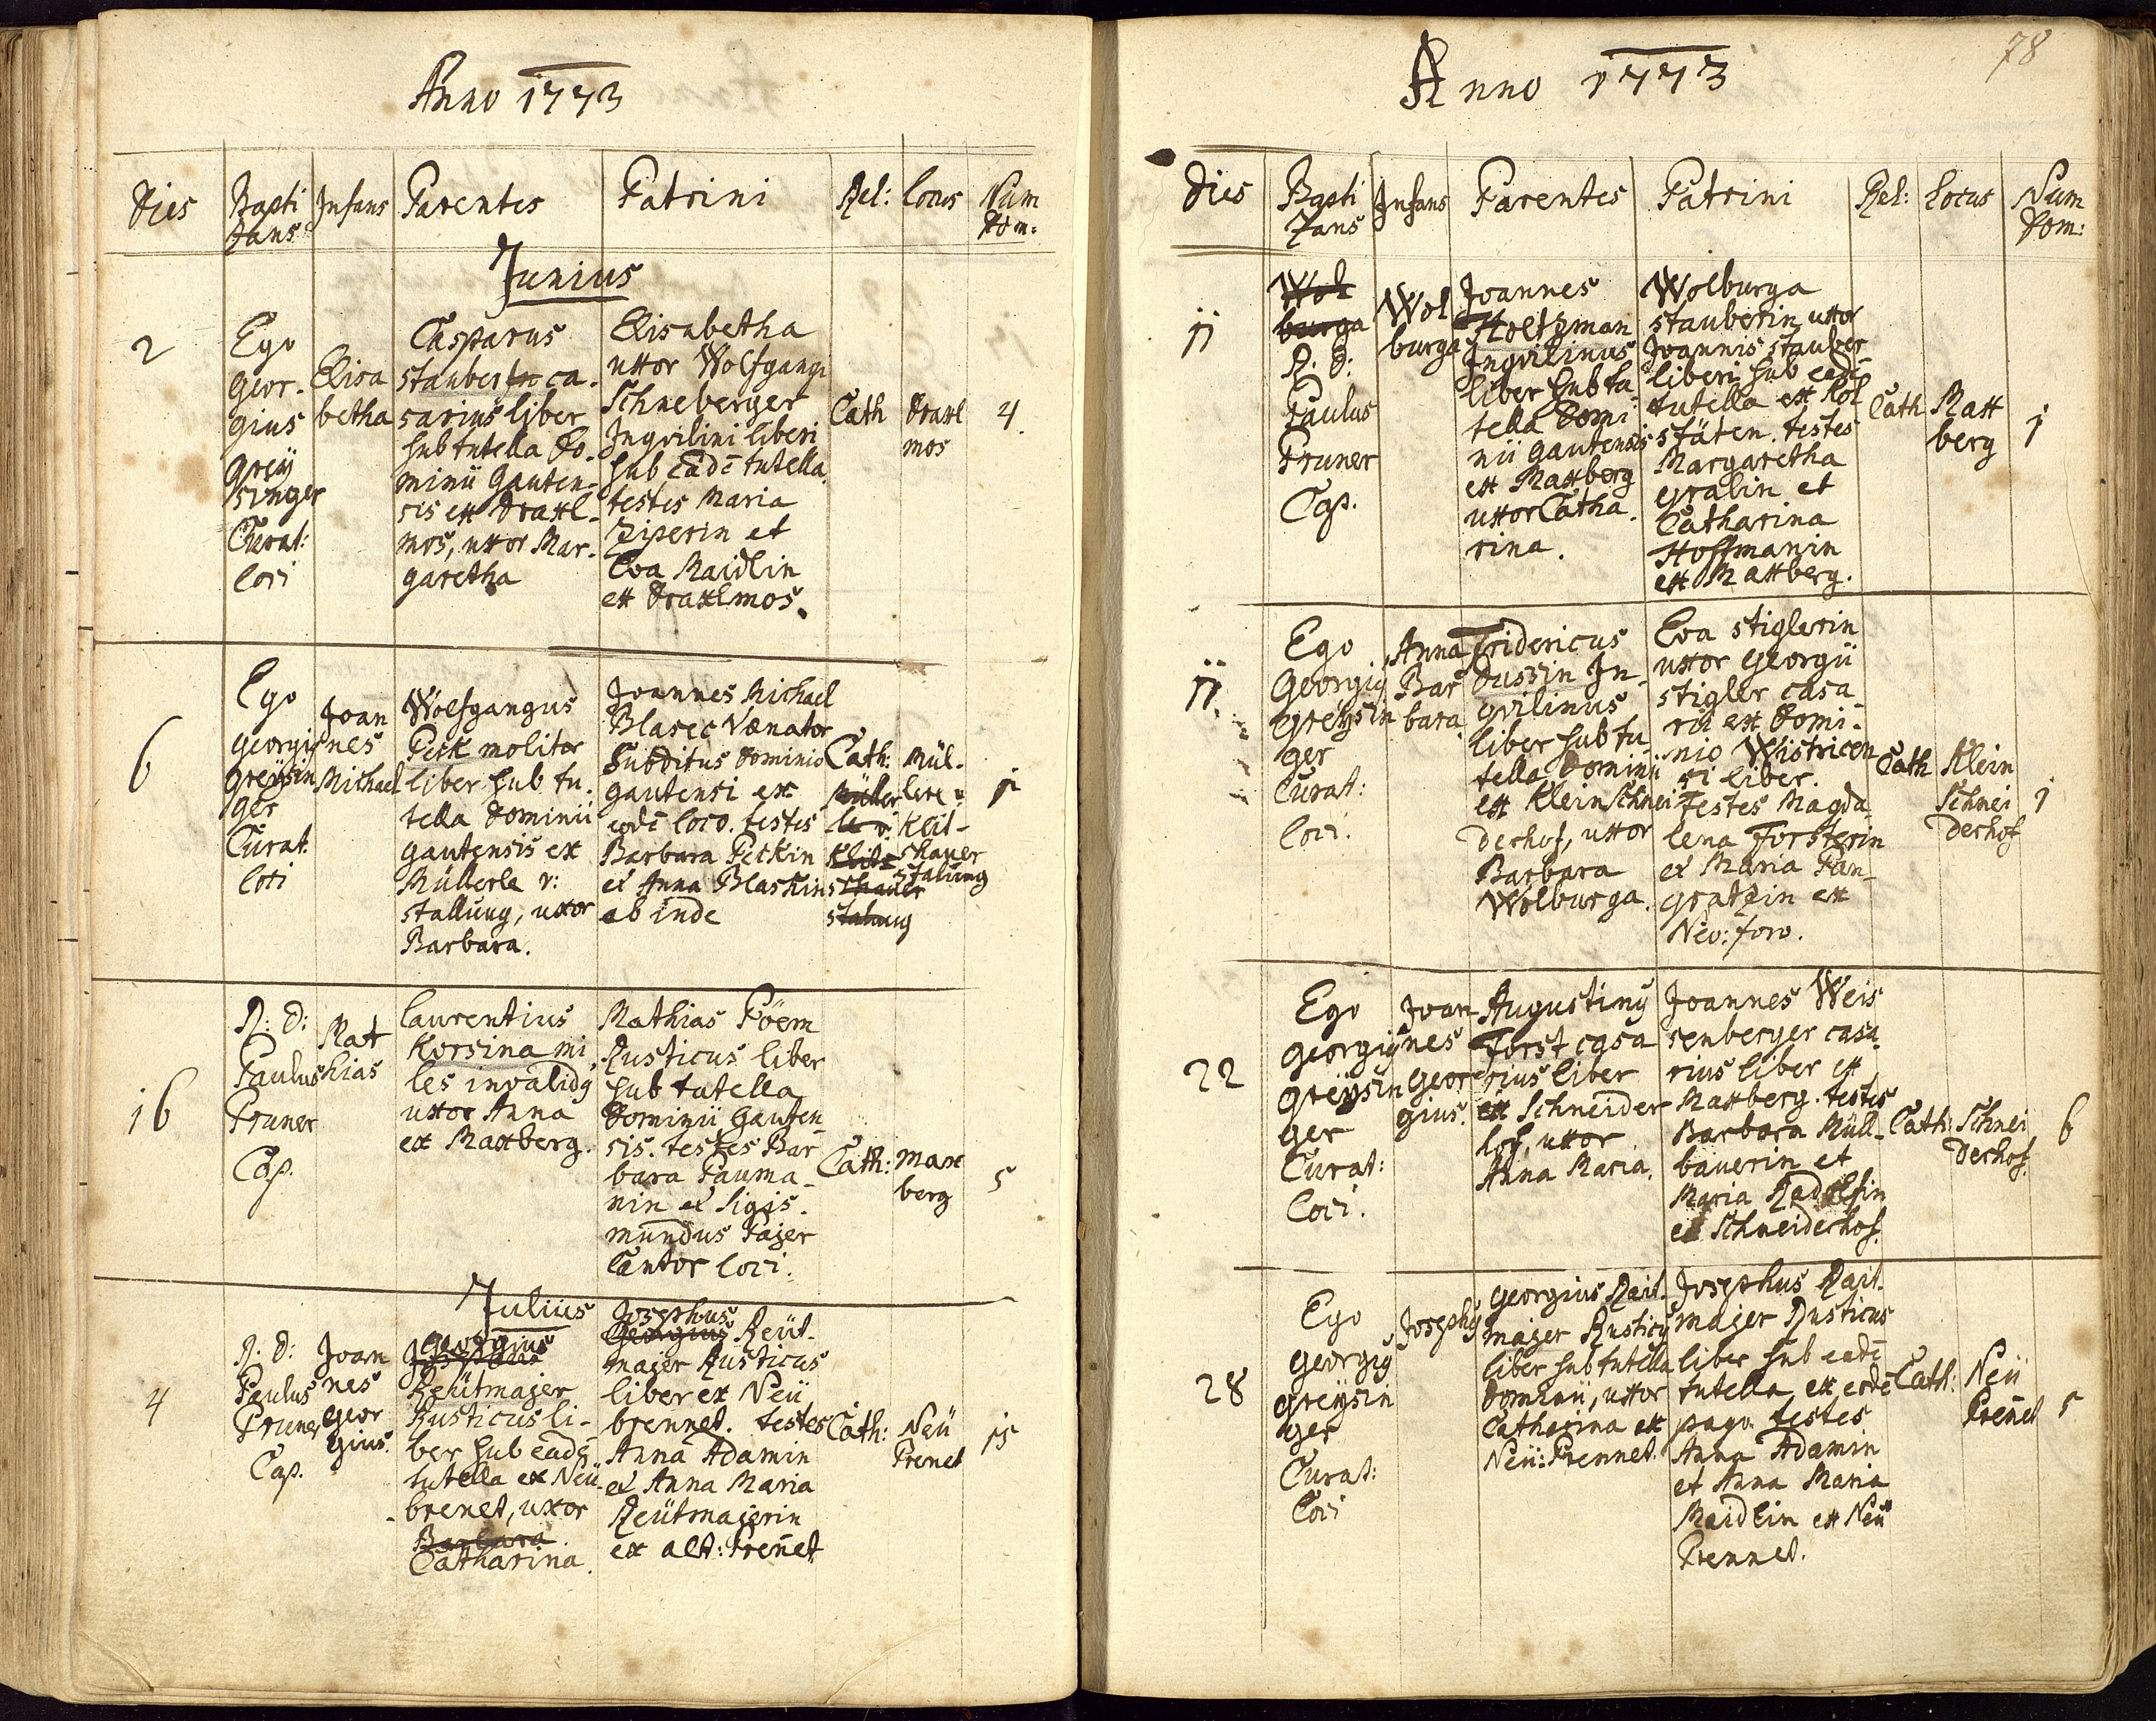 Anno 1773
Dies Bapti Infans Parentes Patrini Rel: Locus Num
zans Dom:
Junius
2
Ego
Geor-
gius
Greÿ
singer
Curat:
loci
Elisa
betha
Casparus
stauber ca-
sarius liber
sub tutella Do-
minii Gauten-
sis ex Draxl-
mos, uxor Mar-
garetha
Elisabetha
uxor Wolfgangi
Schneberger
Inqvilini liberi
sub Eadē tutella
testes Maria
Ziperin et
Eva Maidlin
ex Draxlmos.
Cath
Draxl
mos
4.
6
Ego
Georgiꝰ
Greÿsin
ger
Curat.
loci
Joan
nes
Michael
Wolfgangus
Peck molitor
liber sub tu-
tella Dominii
gautensis ex
Müllerle v:
stallung, uxor
Barbara.
Joannes Michael
Blasec Venator
Subditus Dominio
gautensi ex
eodē loco. testes
Barbara Peckin
et Anna Blaskin
ab inde
Cath:
Müller
le v:
Klit
schauer
stalung
Mül-
lerle v:
Klit-
schauer
stalung
1
16
R: D:
Paulus
Pruner
Cap.
Mat
hias
Laurentius
Korsina mi
les invalidꝰ
uxor Anna
ex Maxberg.
Mathias Pöem
Rusticus liber
sub tutella
Dominii Gauten
sis. testes Bar
bara Pauma-
nin et Sigis-
mundus Pajer
Cantor loci.
Cath:
Max
berg
5
Julius
4
R. D:
Paulus
Pruner
Cap.
Joan
nes
Geor
gius.
Josephus
Georgius
Reütmajer
Rusticus li-
ber sub eadē
tutella ex Neü-
brenet, uxor
Barbara
Catharina.
Josephus
Georgius Reüt-
majer Rusticus
liber ex Neü
brennet. testes
Anna Adamin
et Anna Maria
Reütmajerin
ex alt: Prenet
Cath:
Neü
Prenet
15
78
Anno 1773
Dies Bapti Infans Parentes Patrini Rel: Locus Num
zans Dom:
11
Wol
burga
R. D:
Paulus
Pruner
Cap.
Wol
burga
Joannes
Holtzman
Inqvilinus
liber sub tu-
tella Domi
nii gautensis
ex Maxberg
uxor Catha-
rina.
Wolburga
stauberin, uxor
Joannis stauber
liberi sub eadē
tutella ex Hol
stäten. testes
Margaretha
gralin et
Catharina
Hoffmanin
ex Maxberg.
Cath
Max
berg
1
11.
Ego
Georgiꝰ
Greÿsin
ger
Curat:
loci.
Anna
Bar
bara
Fridericus
Dussin In-
qvilinus
liber sub tu-
tella Dominii
ex Klein Schnei
derhof, uxor
Barbara
Wolburga.
Eva stiglerin
uxor Georgii
stigler casa
rii ex Domi-
nio Wistricen
si liber.
Testes Magda
lena Forsterin
et Maria Pan-
gratzin ex
Neo: foro.
Cath
Klein
Schnei
derhof
1
22
Ego
Georgiꝰ
Greÿsin
ger
Curat:
loci.
Joan
nes
Geor
gius.
Augustinꝰ
Forst casa
rius liber
ex Schneider
hof, uxor
Anna Maria.
Joannes Weis
senberger casa
rius liber ex
Maxberg. testes
Barbara Müll-
bauerin et
Maria Radlsin
ex Schneiderhof.
Cath:
Schnei
derhof.
6
28
Ego
Georgiꝰ
Greÿsin
ger
Curat:
loci
Josephꝰ
Georgius Rait-
majer Rusticꝰ
liber sub tutella
Dominii, uxor
Catharina ex
Neü: Prennet.
Josephus Rait-
majer Rusticus
liber sub eadē
tutella ex eodē
pago. testes
Anna Adamin
et Anna Maria
Maidlin ex Neü
Prennet.
Cath:
Neü
Prenet
5